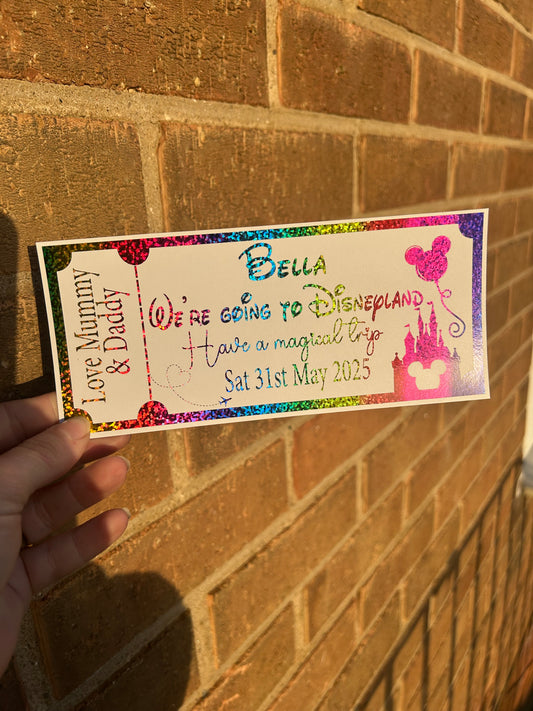 Love Mummy
& Daddy
Bella
We're going to Disneyland
Have a magical trip
Sat 31st May 2025